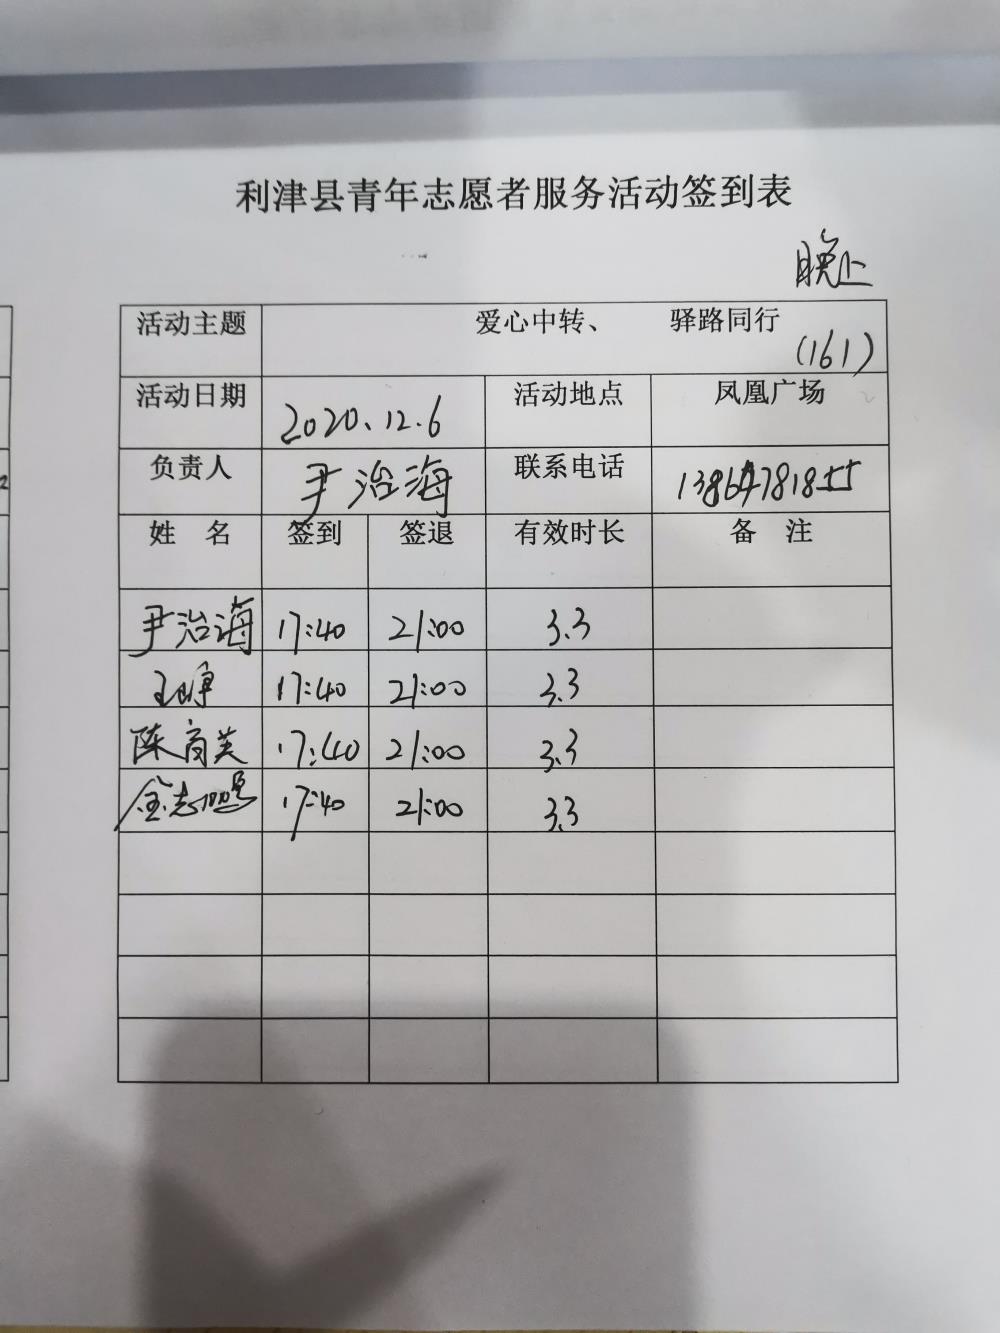 利津县青年志愿者服务活动签到表
晚上
活动主题 爱心中转、 驿路同行 (161)
活动日期 2020.12.6 活动地点 凤凰广场
负责人 尹治海 联系电话
姓 名 签到 签退 有效时长 备 注
尹治海 17:40 21:00 3.3
17:40 21:00 3.3
陈育英 17:40 21:00 3.3
17:40 21:00 3.3